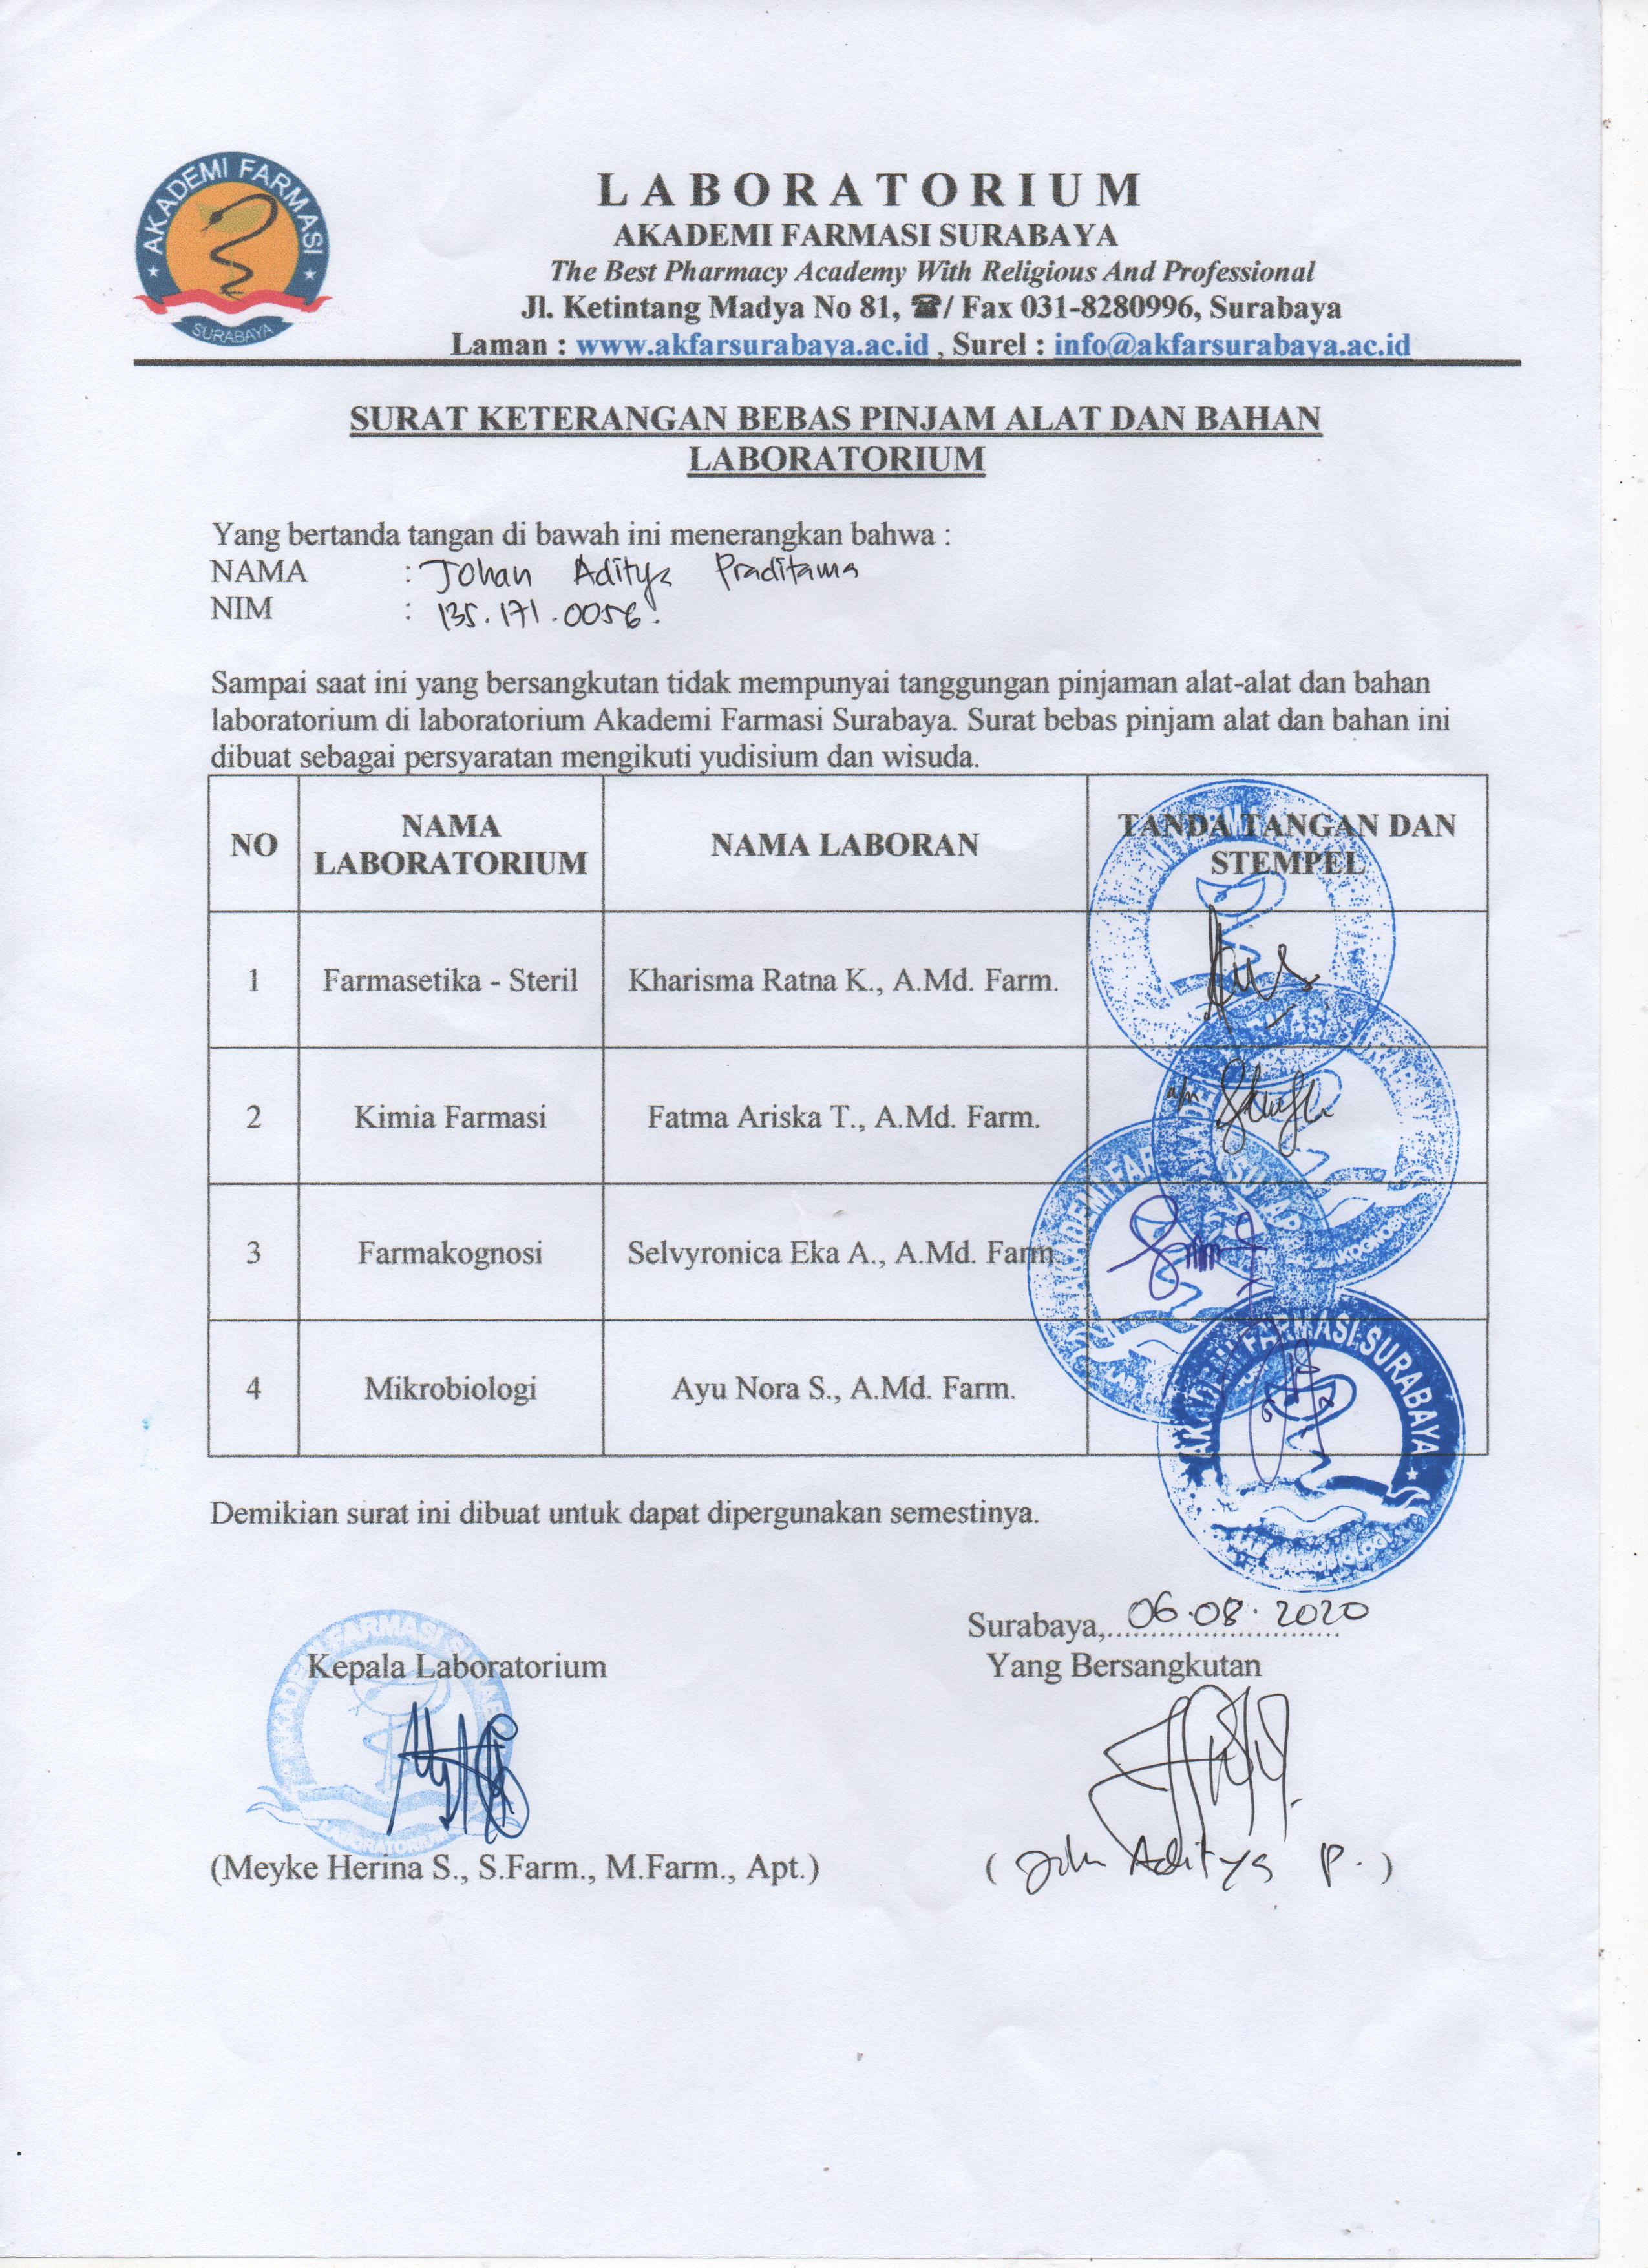 AKADEMI FARMASI
SURABAYA
LABORATORIUM
AKADEMI FARMASI SURABAYA
The Best Pharmacy Academy With Religious And Professional
Jl. Ketintang Madya No 81, ☎/ Fax 031-8280996, Surabaya
Laman : www.akfarsurabaya.ac.id , Surel : info@akfarsurabaya.ac.id
SURAT KETERANGAN BEBAS PINJAM ALAT DAN BAHAN
LABORATORIUM
Yang bertanda tangan di bawah ini menerangkan bahwa :
NAMA : Johan Aditya Praditama
NIM : 135.171.0056.
Sampai saat ini yang bersangkutan tidak mempunyai tanggungan pinjaman alat-alat dan bahan
laboratorium di laboratorium Akademi Farmasi Surabaya. Surat bebas pinjam alat dan bahan ini
dibuat sebagai persyaratan mengikuti yudisium dan wisuda.
NO NAMA LABORATORIUM NAMA LABORAN TANDA TANGAN DAN STEMPEL
1 Farmasetika - Steril Kharisma Ratna K., A.Md. Farm.
2 Kimia Farmasi Fatma Ariska T., A.Md. Farm. a/n
3 Farmakognosi Selvyronica Eka A., A.Md. Farm.
4 Mikrobiologi Ayu Nora S., A.Md. Farm.
AKADEMI FARMASI SURABAYA
Demikian surat ini dibuat untuk dapat dipergunakan semestinya.
Surabaya, 06.08.2020
Kepala Laboratorium Yang Bersangkutan
AKADEMI FARMASI SURABAYA
LABORATORIUM
(Meyke Herina S., S.Farm., M.Farm., Apt.) ( Johan Aditya P. )